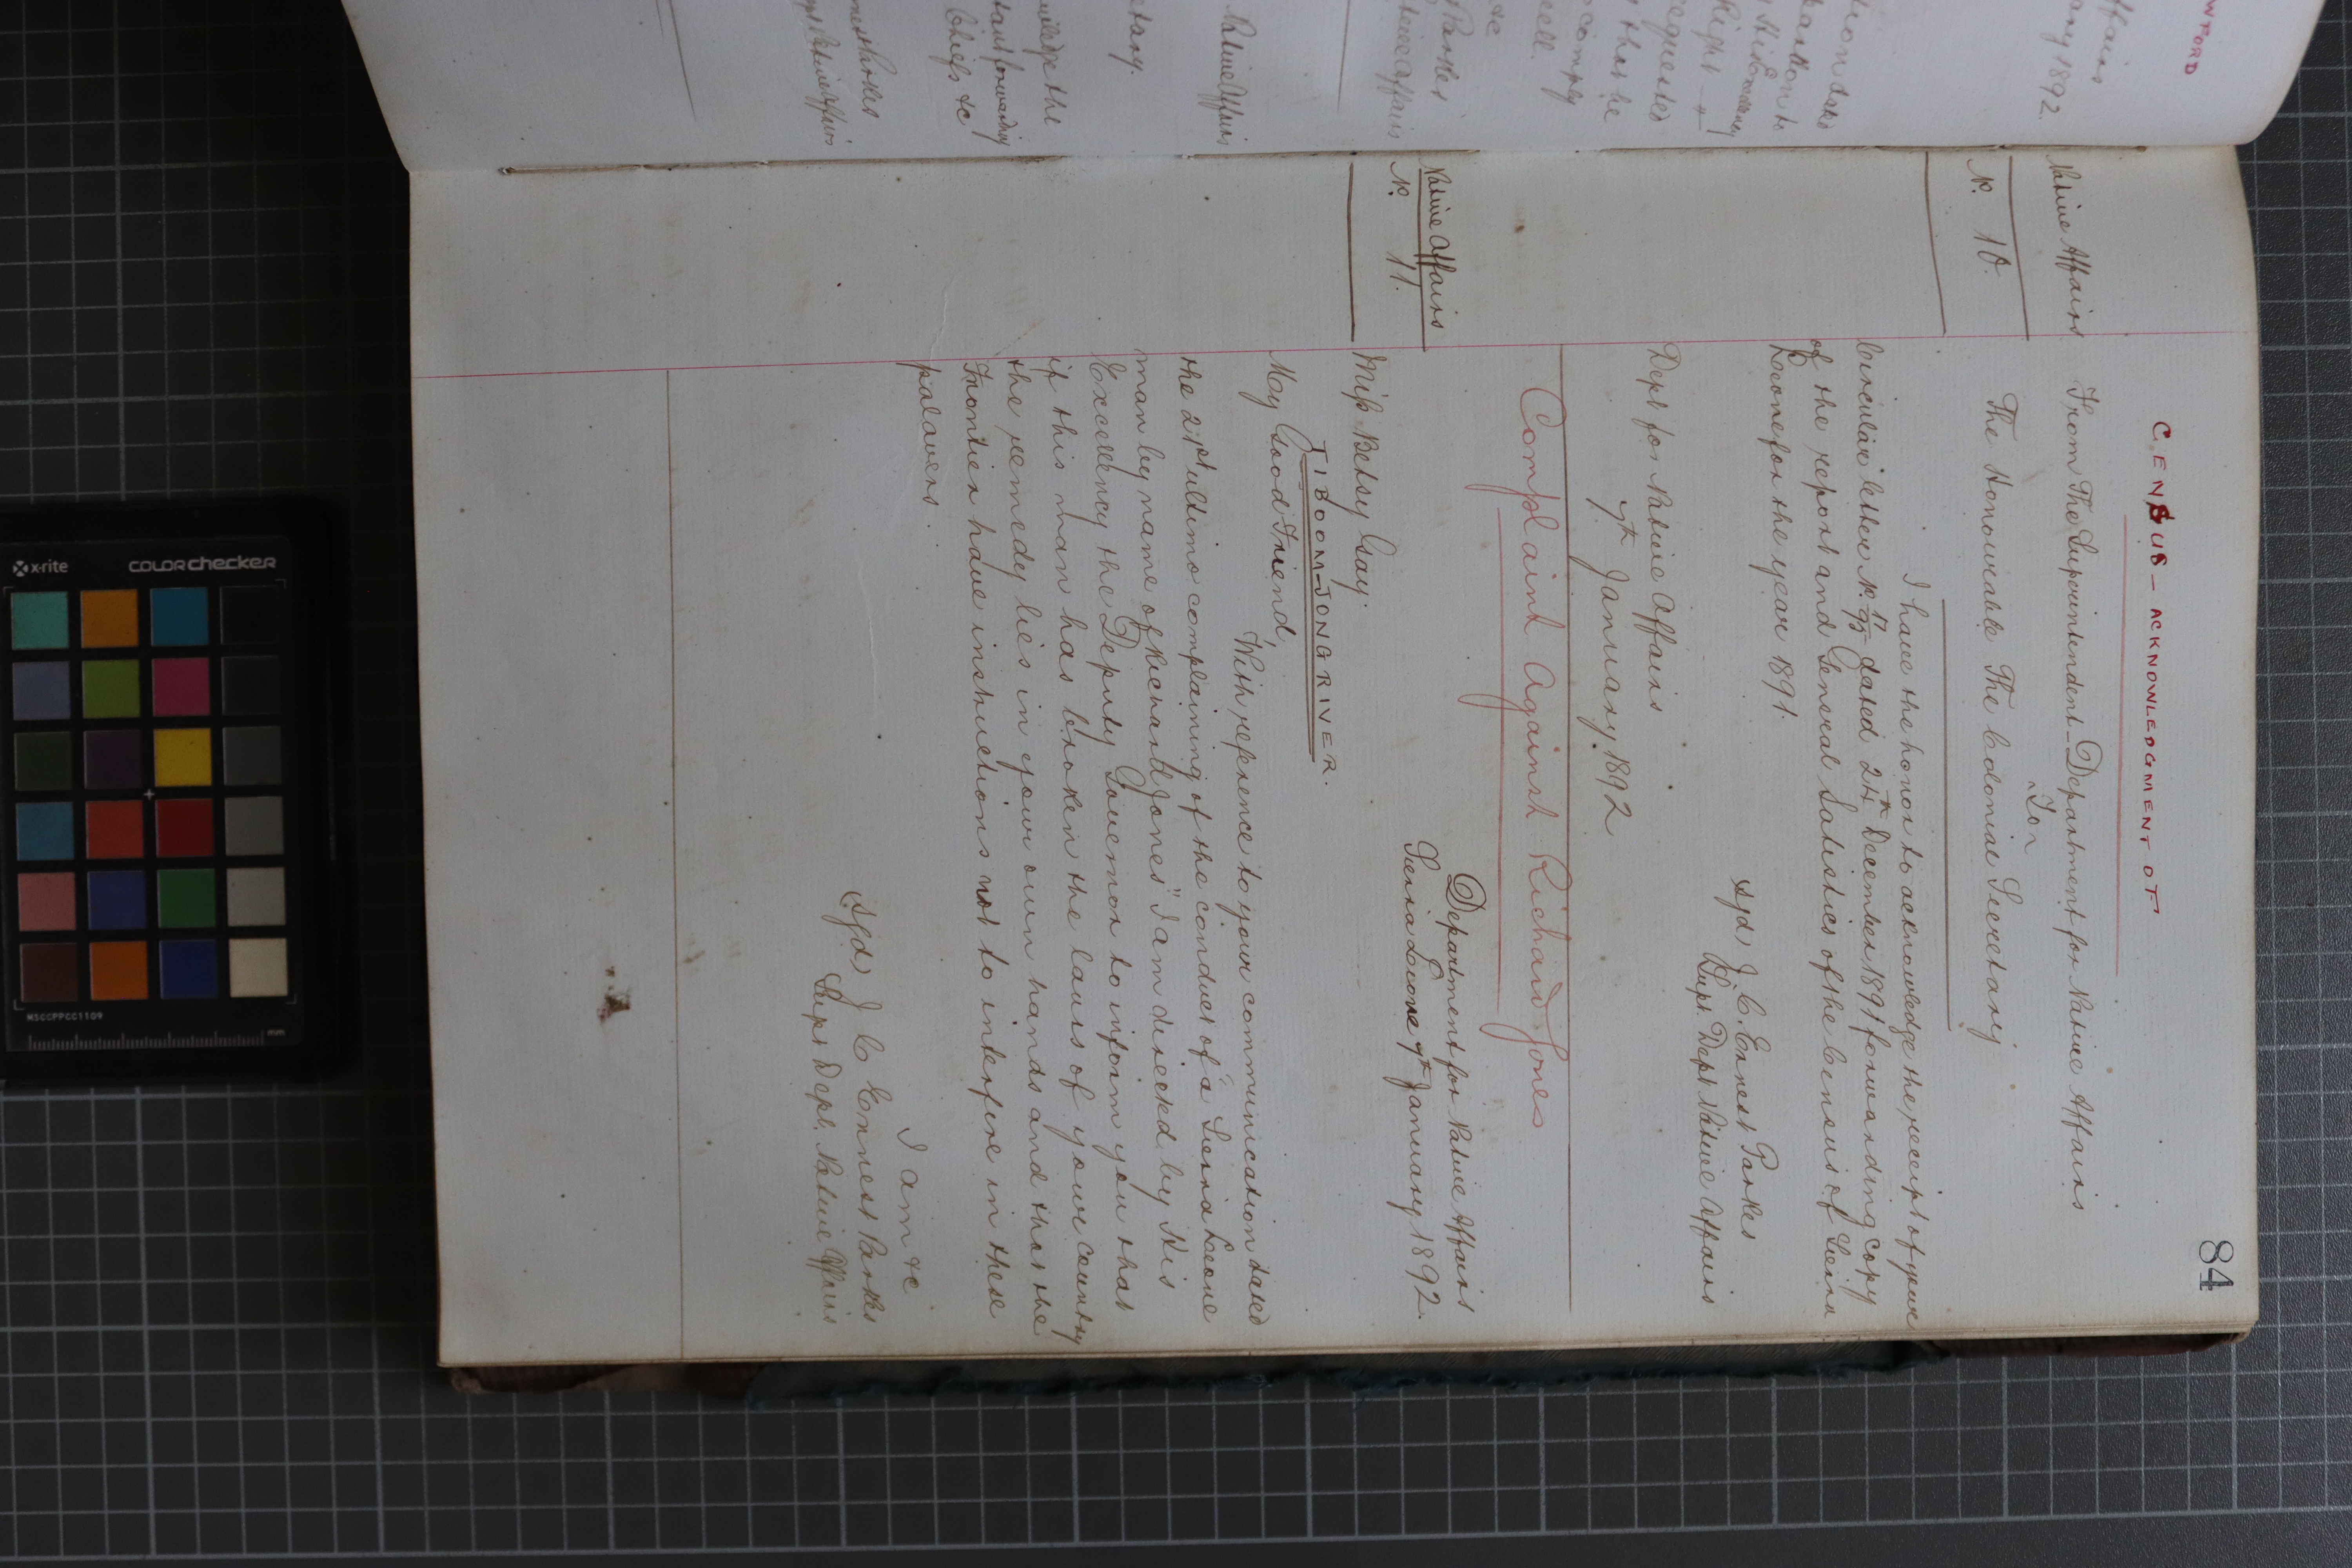 84
CENSUS - ACKNOWLEDGMENT OF
Native Affairs
No. 10.
From The Superintendent Department for Native Affairs
To
The Honourable The Colonial Secretary
I have the honor to acknowledge the receipt of your
Circular letter No. dated 24th December 1891 forwarding copy
of the report and General Statistics of the Census of Sierra
Leone for the year 1891.
Sgd, J. C. Ernest Parkes
Supt. Dept Native Affairs
Dept for Native Affairs
7th January 1892
Complaint Against Richard Jones
Native Affairs
No. 11.
Department for Native Affairs
Sierra Leone 7th January 1892.
Miss Betsy Gay.
TIBOOM-JONG RIVER.
My Good Friend,
With reference to your communication dated
the 21st ultimo complaining of the conduct of "a Sierra Leone
man by name of Richard Jones" I am directed by His
Excellency the Deputy Governor to inform you that
if this man has broken the laws of your country
the remedy lies in your own hands and that the
Frontier have instructions not to interfere in these
palavers.
I am &c
(Sgd) J C Ernest Parkes
Supt Dept. Native Affairs
WFORD
ffairs
ary 1892.
tion dated
Right
requested
that he
comply
well.
&c
Parkes
tive Affairs
Native Affairs
etary.
wledge the
tant forwarding
Chiefs &c
nest Parkes
Native Affairs
x-rite
colorchecker
MSCCPPCC1109
mm